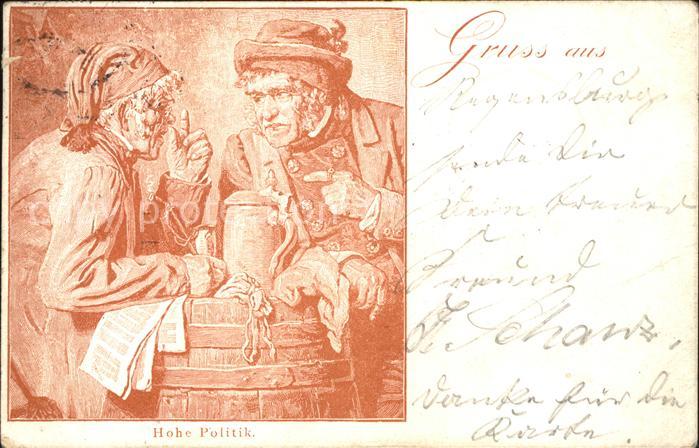 Gruss aus
Regensburg
sende dir
dein treuer
Freund
Schanz.
danke für die
Karte
Hohe Politik.